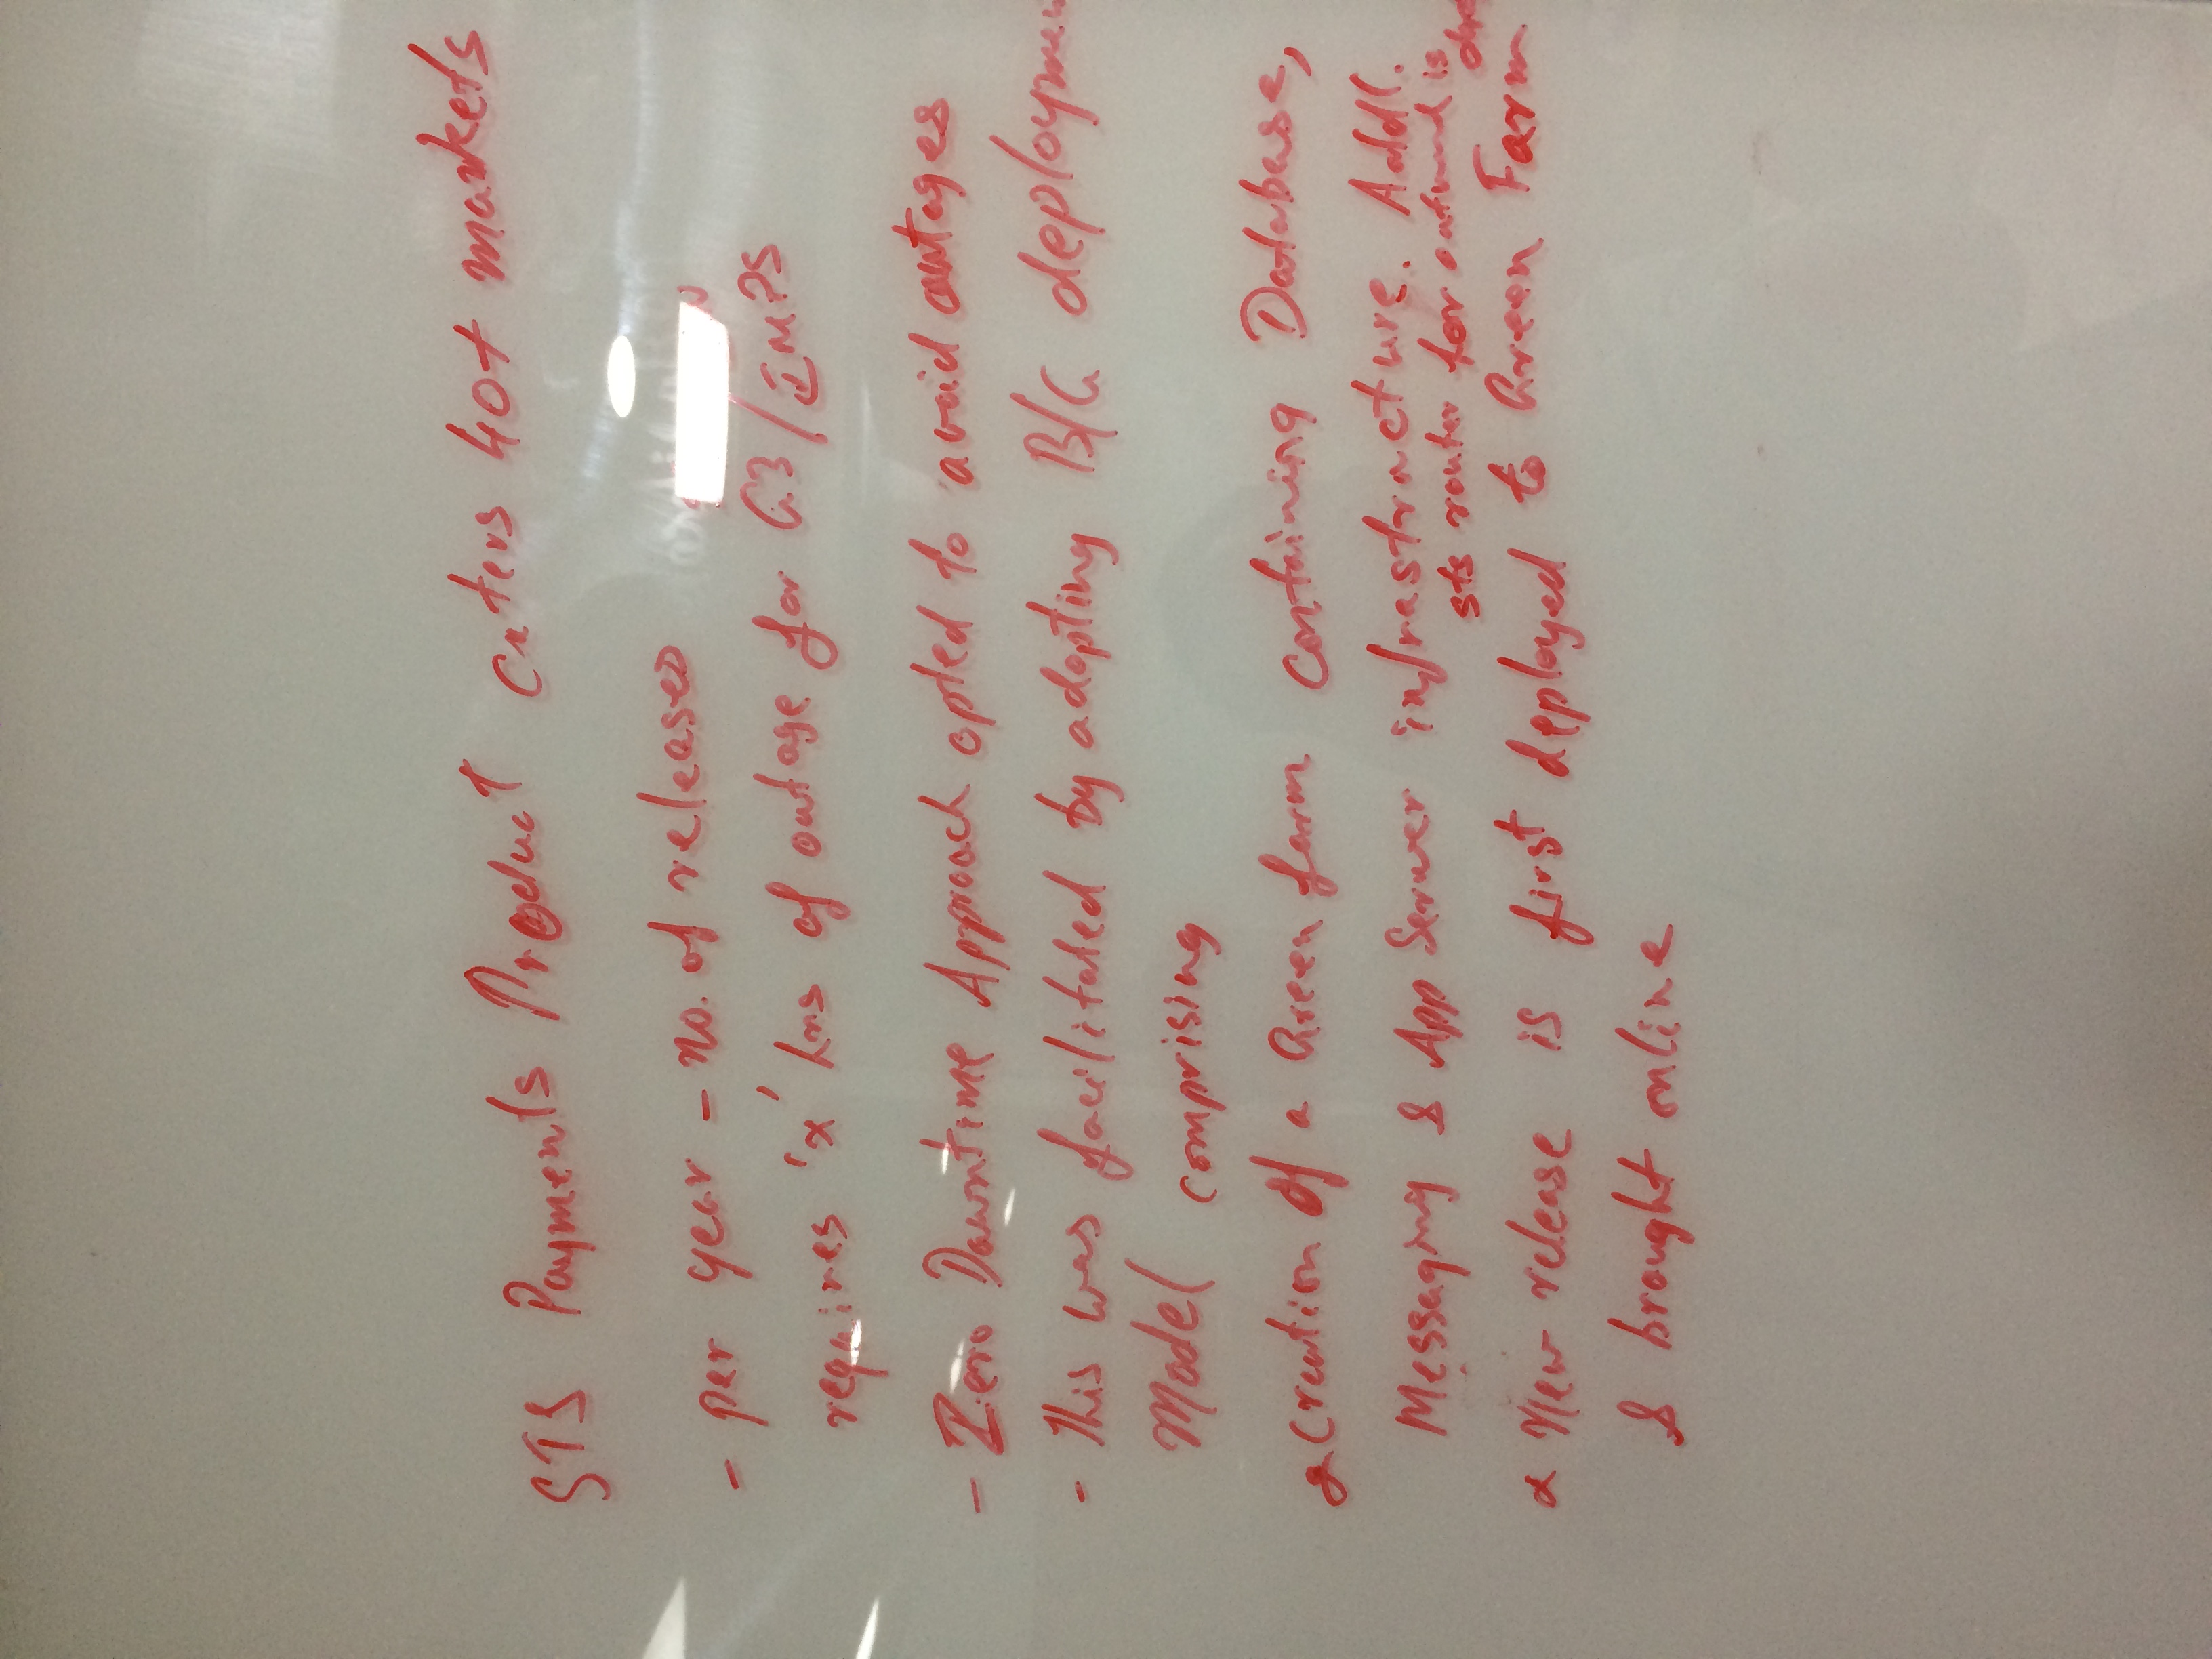 STS Payments Product caters 40+ markets
- per year - no. of releases
requires 'x' hrs of outage for G3/IMPS
- Zero Downtime Approach opted to avoid outages
- This was facilitated by adopting B/G deploymen
Model comprising
creation of a Green farm containing Database,
Messaging & App Server infrastructure. Addl.
sts router for outbound is
* New release is first deployed to Green Farm
& brought online